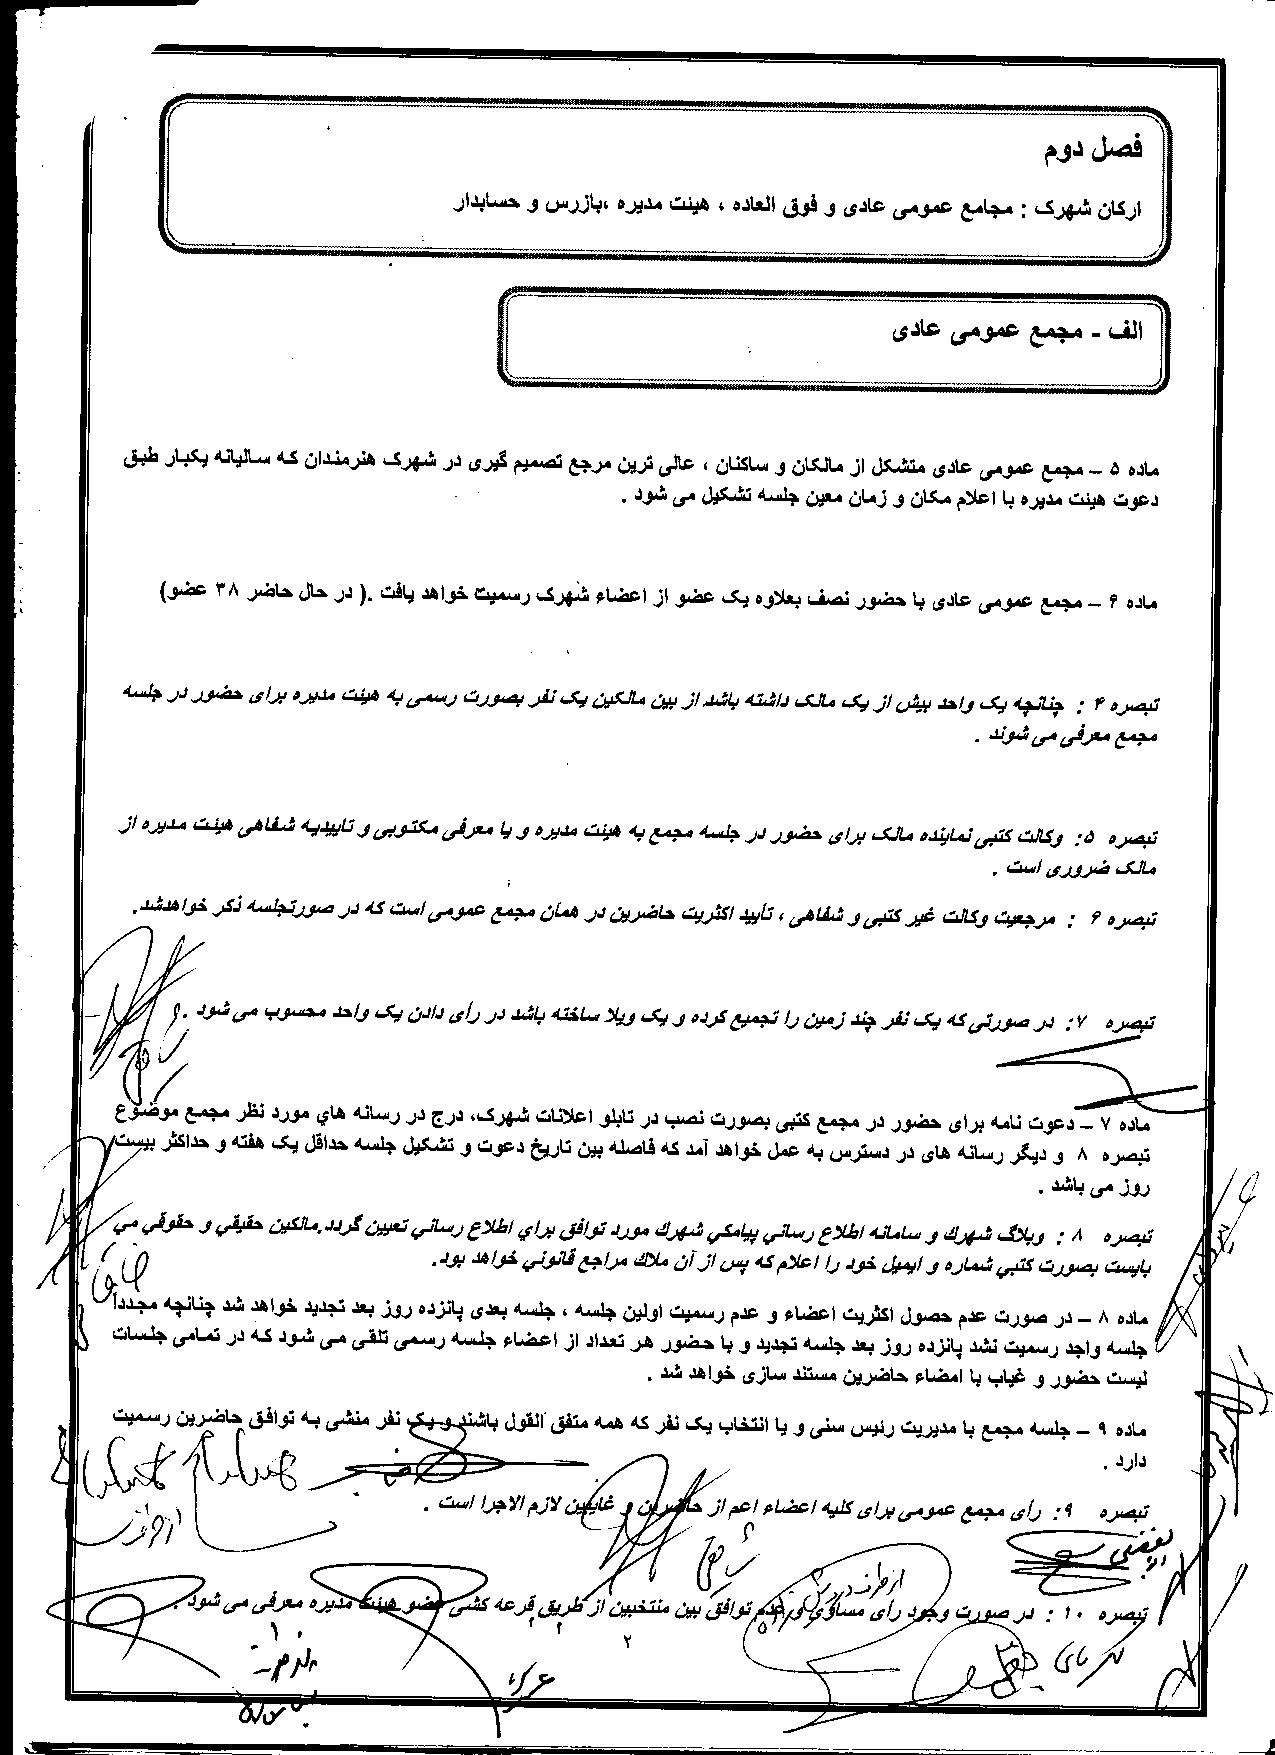 فصل دوم
ارکان شهرک : مجامع عمومی عادی و فوق العاده ، هیئت مدیره ،بازرس و حسابدار
الف ـ مجمع عمومی عادی
ماده ۵ – مجمع عمومی عادی متشکل از مالکان و ساکنان ، عالی ترین مرجع تصمیم گیری در شهرک هنرمندان که سالیانه یکبار طبق
دعوت هیئت مدیره با اعلام مکان و زمان معین جلسه تشکیل می شود .
ماده ۶ – مجمع عمومی عادی با حضور نصف بعلاوه یک عضو از اعضاء شهرک رسمیت خواهد یافت .( در حال حاضر ۳۸ عضو)
تبصره ۴ : چنانچه یک واحد بیش از یک مالک داشته باشد از بین مالکین یک نفر بصورت رسمی به هیئت مدیره برای حضور در جلسه
مجمع معرفی می شوند .
تبصره ۵: وکالت کتبی نماینده مالک برای حضور در جلسه مجمع به هیئت مدیره و یا معرفی مکتوبی و تاییدیه شفاهی هیئت مدیره از
مالک ضروری است .
تبصره ۶ : مرجعیت وکالت غیر کتبی و شفاهی ، تأیید اکثریت حاضرین در همان مجمع عمومی است که در صورتجلسه ذکر خواهدشد.
تبصره ۷: در صورتی که یک نفر چند زمین را تجمیع کرده و یک ویلا ساخته باشد در رأی دادن یک واحد محسوب می شود .
ماده ۷ – دعوت نامه برای حضور در مجمع کتبی بصورت نصب در تابلو اعلانات شهرک، درج در رسانه هاي مورد نظر مجمع موضوع
تبصره ۸ و دیگر رسانه های در دسترس به عمل خواهد آمد که فاصله بین تاریخ دعوت و تشکیل جلسه حداقل یک هفته و حداکثر بیست
روز می باشد .
تبصره ۸ : وبلاگ شهرك و سامانه اطلاع رساني پيامكي شهرك مورد توافق براي اطلاع رساني تعيين گردد.مالكين حقيقي و حقوقي مي
بايست بصورت كتبي شماره و ايميل خود را اعلام كه پس از آن ملاك مراجع قانوني خواهد بود.
ماده ۸ – در صورت عدم حصول اکثریت اعضاء و عدم رسمیت اولین جلسه ، جلسه بعدی پانزده روز بعد تجدید خواهد شد چنانچه مجدداً
جلسه واجد رسمیت نشد پانزده روز بعد جلسه تجدید و با حضور هر تعداد از اعضاء جلسه رسمی تلقی می شود که در تمامی جلسات
لیست حضور و غیاب با امضاء حاضرین مستند سازی خواهد شد .
ماده ۹ – جلسه مجمع با مدیریت رئیس سنی و یا انتخاب یک نفر که همه متفق القول باشند و یک نفر منشی به توافق حاضرین رسمیت
دارد .
تبصره ۹: رأی مجمع عمومی برای کلیه اعضاء اعم از حاضرین و غایبین لازم الاجرا است .
تبصره ۱۰ : در صورت وجود رأی مساوی و عدم توافق بین منتخبین از طریق قرعه کشی عضو هیئت مدیره معرفی می شود .
۲